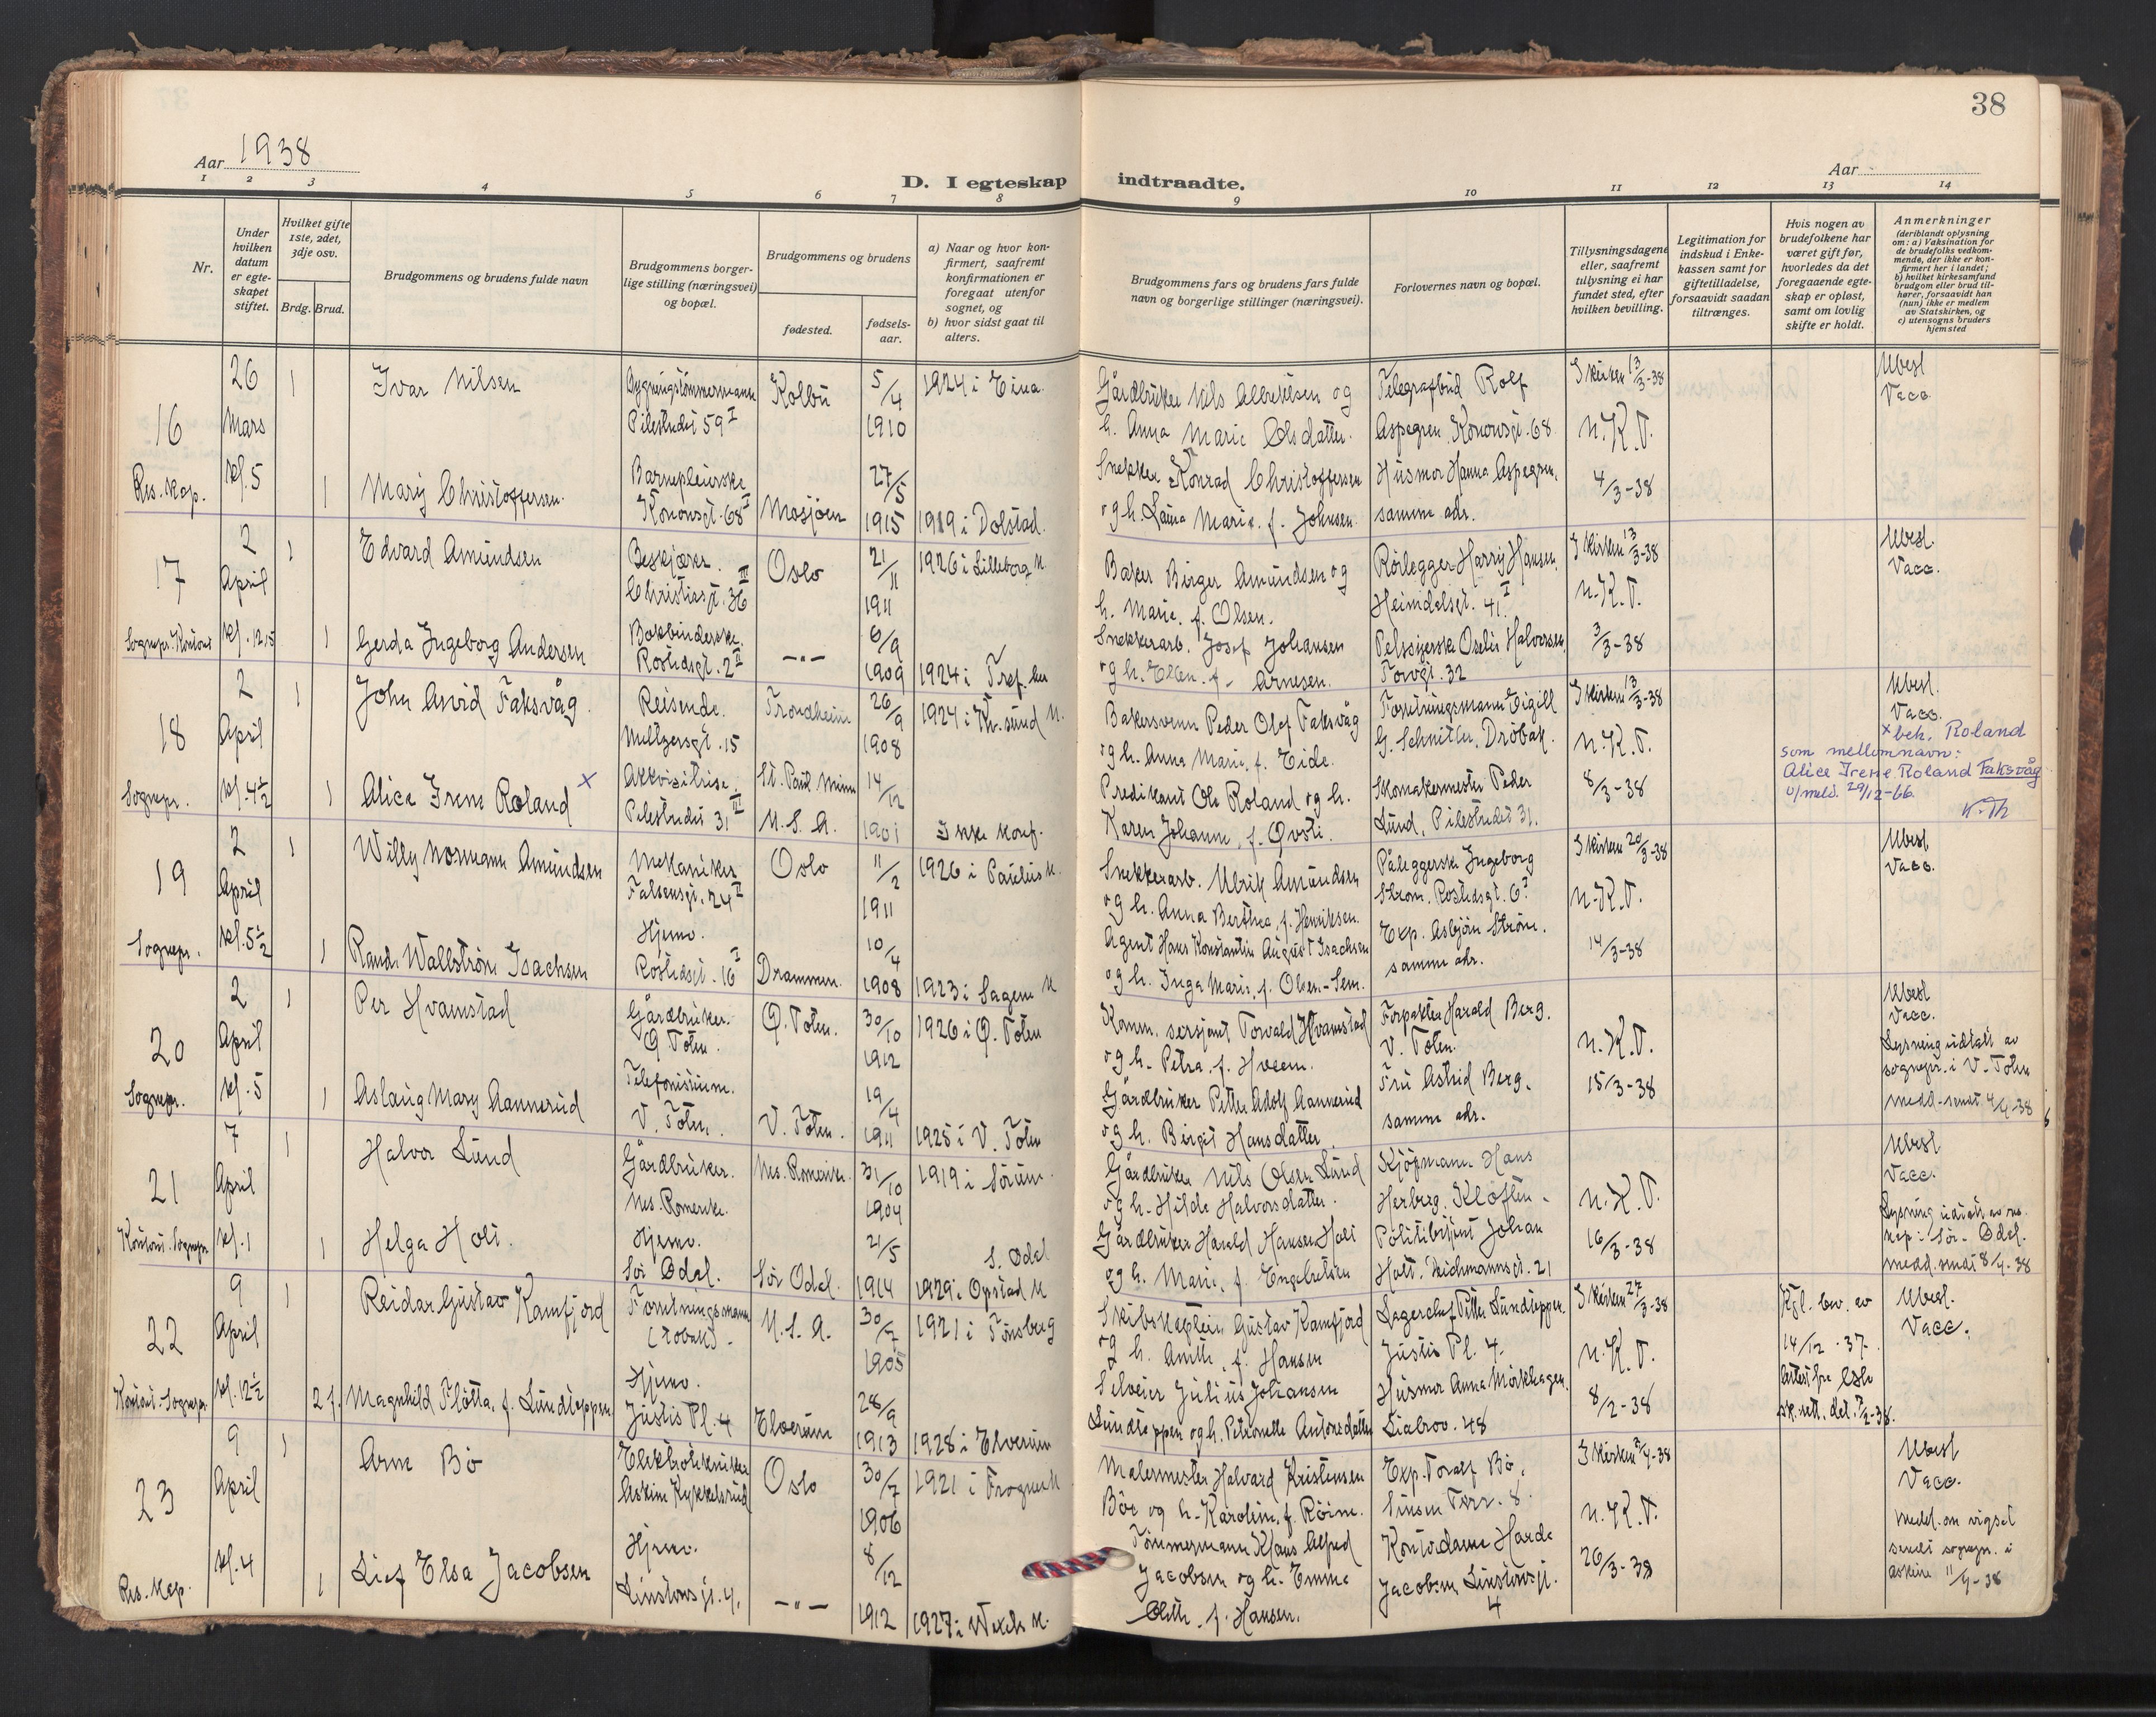 38
Aar 1938
Aar
D. I egteskap indtraadte.
1 2 3 4 5 6 7 8 9 10 11 12 13 14
Nr.
Under hvilken datum er egteskapet stiftet.
Hvilket gifte 1ste, 2det, 3dje osv.
Brdg. Brud.
Brudgommens og brudens fulde navn
Brudgommens borgerlige stilling (næringsvei) og bopæl.
Brudgommens og brudens
fødested.
fødselsaar.
a) Naar og hvor konfirmert, saafremt konfirmationen er foregaat utenfor sognet, og
b) hvor sidst gaat til alters.
Brudgommens fars og brudens fars fulde navn og borgerlige stillinger (næringsvei).
Forlovernes navn og bopæl.
Tillysningsdagene eller, saafremt tillysning ei har fundet sted, efter hvilken bevilling.
Legitimation for indskud i Enkekassen samt for giftetilladelse, forsaavidt saadan tiltrænges.
Hvis nogen av brudefolkene har været gift før, hvorledes da det foregaaende egteskap er opløst, samt om lovlig skifte er holdt.
Anmerkninger
(deriblandt oplysning om: a) Vaksination for de brudefolks vedkommende, der ikke er konfirmert her i landet; b) hvilket kirkesamfund brudgom eller brud tilhører, forsaavidt han (hun) ikke er medlem av Statskirken, og c) utensogns bruders hjemsted
16
Res. kap.
26 Mars kl. 5
1 Ivar Nilsen
Bygningstømmermann
Pilestredet 59 I
Kolbu
5/4 1910
1924 i Eina
Gårdbruker Nils Albertsen og
h. Anna Marie Olsdatter.
Telegrafbud Rolf
Aspegren, Konowsgt. 68
I kirken 13/3-38
N.K.T.
Ubesl.
Vacc.
1 Mary Christoffersen.
Barnepleierske
Konowsgt. 68 I
Mosjøen
27/5 1915
1919 i Dolstad.
Snekker Konrad Christoffersen
og h. Laura Marie, f. Johnsen.
Husmor Hanna Aspegren,
samme adr.
4/3-38
17
Sognepr. Kontor
2 April kl. 12.15
1 Edvard Amundsen
Beskjærer.
Christiesgt. 36 III
Oslo
21/11 1911
1926 i Lilleborg k.
Baker Birger Amundsen og
h. Marie, f. Olsen.
Rørlegger Harry Hansen,
Heimdalsgt. 41 I
I kirken 13/3-38
N.K.T.
Ubesl.
Vacc.
1 Gerda Ingeborg Andersen
Bokbinderske.
Rostedsgt. 2 II
—"—
6/9 1909
1924 i Tref. her
Snekkerarb. Josef Johansen
og h. Ellen, f. Arnesen.
Pelssyerske Oselie Halvorsen,
Torvgt. 32
3/3-38
18
Sognepr.
2 April kl. 4½
1 John Arvid Faksvåg.
Reisende.
Meltzersgt. 15
Trondheim
26/9 1908
1924 i Kr.sund N.
Bakersvenn Peder Olaf Faksvåg
og h. Anna Marie, f. Eide.
Forretningsmann Eigill
G. Schnitler, Drøbak.
I kirken 13/3-38
N.K.T.
Ubesl.
Vacc.
x bek. Roland
som mellomnavn:
Alice Irene Roland Faksvåg
v/meld. 29/12-66.
1 Alice Irene Roland x
Akkvisitrise.
Pilestredet 31 III
St. Paul Minn
U.S.A.
14/12 1901
Ikke konf.
Predikant Ole Roland og h.
Karen Johanne, f. Qvsti.
Skomakermester Peder
Lund, Pilestredet 31.
8/3-38
19
Sognepr.
2 April kl. 5½
1 Willy Normann Amundsen
Mekaniker
Falsensgt. 24 II
Oslo
11/2 1911
1926 i Paulus k.
Snekkerarb. Ulrik Amundsen
og h. Anna Berthea, f. Henriksen.
Påleggerske Ingeborg
Strøm, Rostedsgt. 6 I
I kirken 20/3-38
N.K.T.
Ubesl.
Vacc.
1 Randi Wallstrøm Isachsen
Hjemv.
Rostedsgt. 16 I
Drammen.
10/4 1908
1923 i Sagene k
Agent Hans Konstantin August Isachsen
og h. Inga Marie, f. Olsen-Sem.
Exp. Asbjørn Strøm.
samme adr.
14/3-38
20
Sognepr.
2 April kl. 5
1 Per Hvamstad
Gårdbruker.
Ø. Toten.
Ø. Toten.
30/10 1912
1926 i Ø. Toten
Komm. sersjant Torvald Hvamstad
og h. Petra, f. Hveem.
Forpakter Harald Berg.
V. Toten.
N.K.T.
Ubesl.
Vacc.
Lysning utført av
sognepr. i V. Toten
medd. sendt 4/4-38
1 Aslaug Mary Aannerud
Telefonistinne.
V. Toten.
V. Toten.
19/4 1911
1925 i V. Toten
Gårdbruker Petter Adolf Aannerud
og h. Birgit Hansdatter.
Fru Astrid Berg.
samme adr.
15/3-38
21
Kontoret. Sognepr.
7 April kl. 1
1 Halvor Lund
Gårdbruker.
Nes. Romerike.
Nes. Romerike.
31/10 1904
1919 i Sørum.
Gårdbruker Nils Olsen Lund
og h. Hilda Halvorsdatter.
Kjøpmann Hans
Herberg. Kløften.
N.K.T.
Ubesl
Vacc.
Lysning utført av res.
kap. i Sør-Odal.
medd. sendt 8/4-38
1 Helga Holi.
Hjemv.
Sør Odal.
Sør Odal.
21/5 1914
S. Odal
1929 i Opstad k
Gårdbruker Harald Hansen Holi
og h. Marie, f. Engebretsen
Politibetjent Johan
Holt, Deichmannsgt. 21
16/3-38
22
Kontoret. Sognepr.
9 April kl. 12½
1 Reidar Gustav Kamfjord
Forretningsmann
(Tobakk).
U.S.A.
30/7 1905
1921 i Tønsberg
Skibskaptein Gustav Kamfjord
og h. Anitte, f. Hansen
Lagerchef Petter Lundteppen.
Justis Pl. 4.
I kirken 27/3-38
N.K.T.
Kgl. bev. av
14/12-37.
Attest fra Oslo
sk.rett. dat. 7/2-38.
Ubesl.
Vacc.
2 f. Magnhild Fløtta, f. Lundteppen
Hjemv.
Justis Pl. 4
Elverum
28/9 1913
1928 i Elverum
Selveier Julius Johansen
Lundteppen og h. Petronelle Antonsdatter
Husmor Anna Mørkhagen.
Liabrov. 48
8/2-38
23
Res. kap.
9 April kl. 4
1 Arne Bö
Elektrotekniker
Askim Kykkelsrud
Oslo
30/7 1906
1921 i Frogner k
Malermester Halvard Kristensen
Böe og h. Karoline, f. Röine.
Exp. Toralf Bö.
Sinsen Terr. 8.
I kirken 3/4-38
N.K.T.
Ubesl
Vacc.
Medd. om vigsel
sendt sognepr. i
Askim 11/4-38
1 Lief Elsa Jacobsen
Hjemv.
Linstowsgt. 4.
—"—
8/12 1912
1927 i Wexels k.
Tømmermann Klaus Alfred
Jacobsen og h. Emma
Olette, f. Hansen.
Kontordame Harda
Jacobsen Linstowsgt.
4
26/3-38